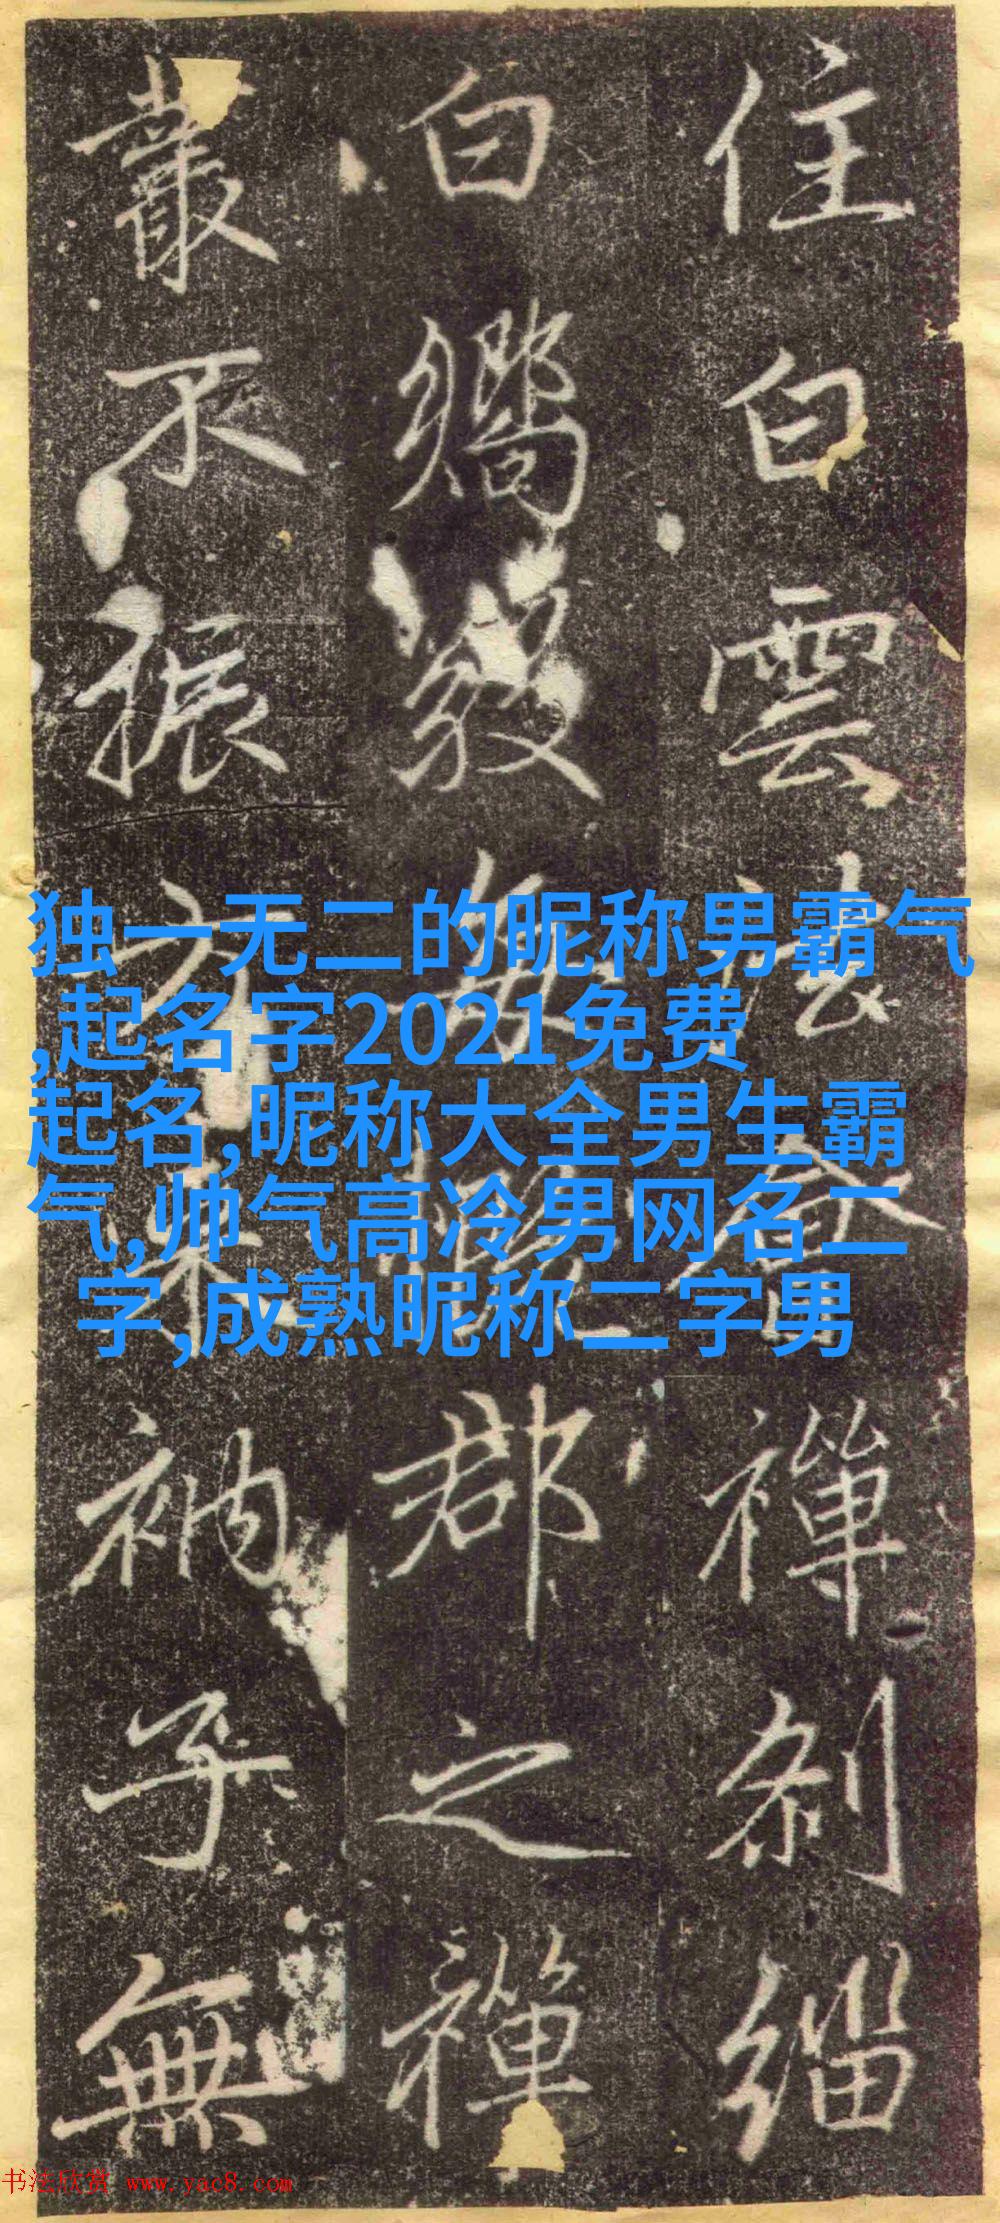 住白雲
禅刹缁
白
郡之禪
叢不振
衲子無
独一无二的昵称男霸气
,起名字2021免费
起名,昵称大全男生霸
气,帅气高冷男网名二
字,成熟昵称二字男
书法欣赏 www.yac8.com